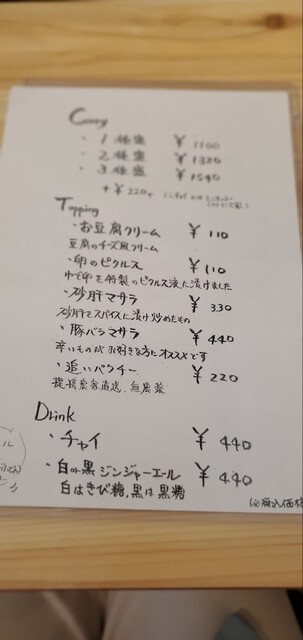 Curry
・1種盛 ¥1100
・2種盛 ¥1320
・3種盛 ¥1540
+¥220で
Topping
・お豆腐クリーム ¥110
豆腐のチーズ風クリーム
・卵のピクルス ¥110
ゆで卵を特製のピクルス液に漬けました
・砂肝マサラ ¥330
砂肝をスパイスに漬け炒めたもの
・豚バラマサラ ¥440
辛いものがお好きな方にオススメです
・追いパクチー ¥220
農家直送、無農薬
Drink
・チャイ ¥440
・白or黒ジンジャーエール ¥440
白はきび糖、黒は黒糖
(税込価格